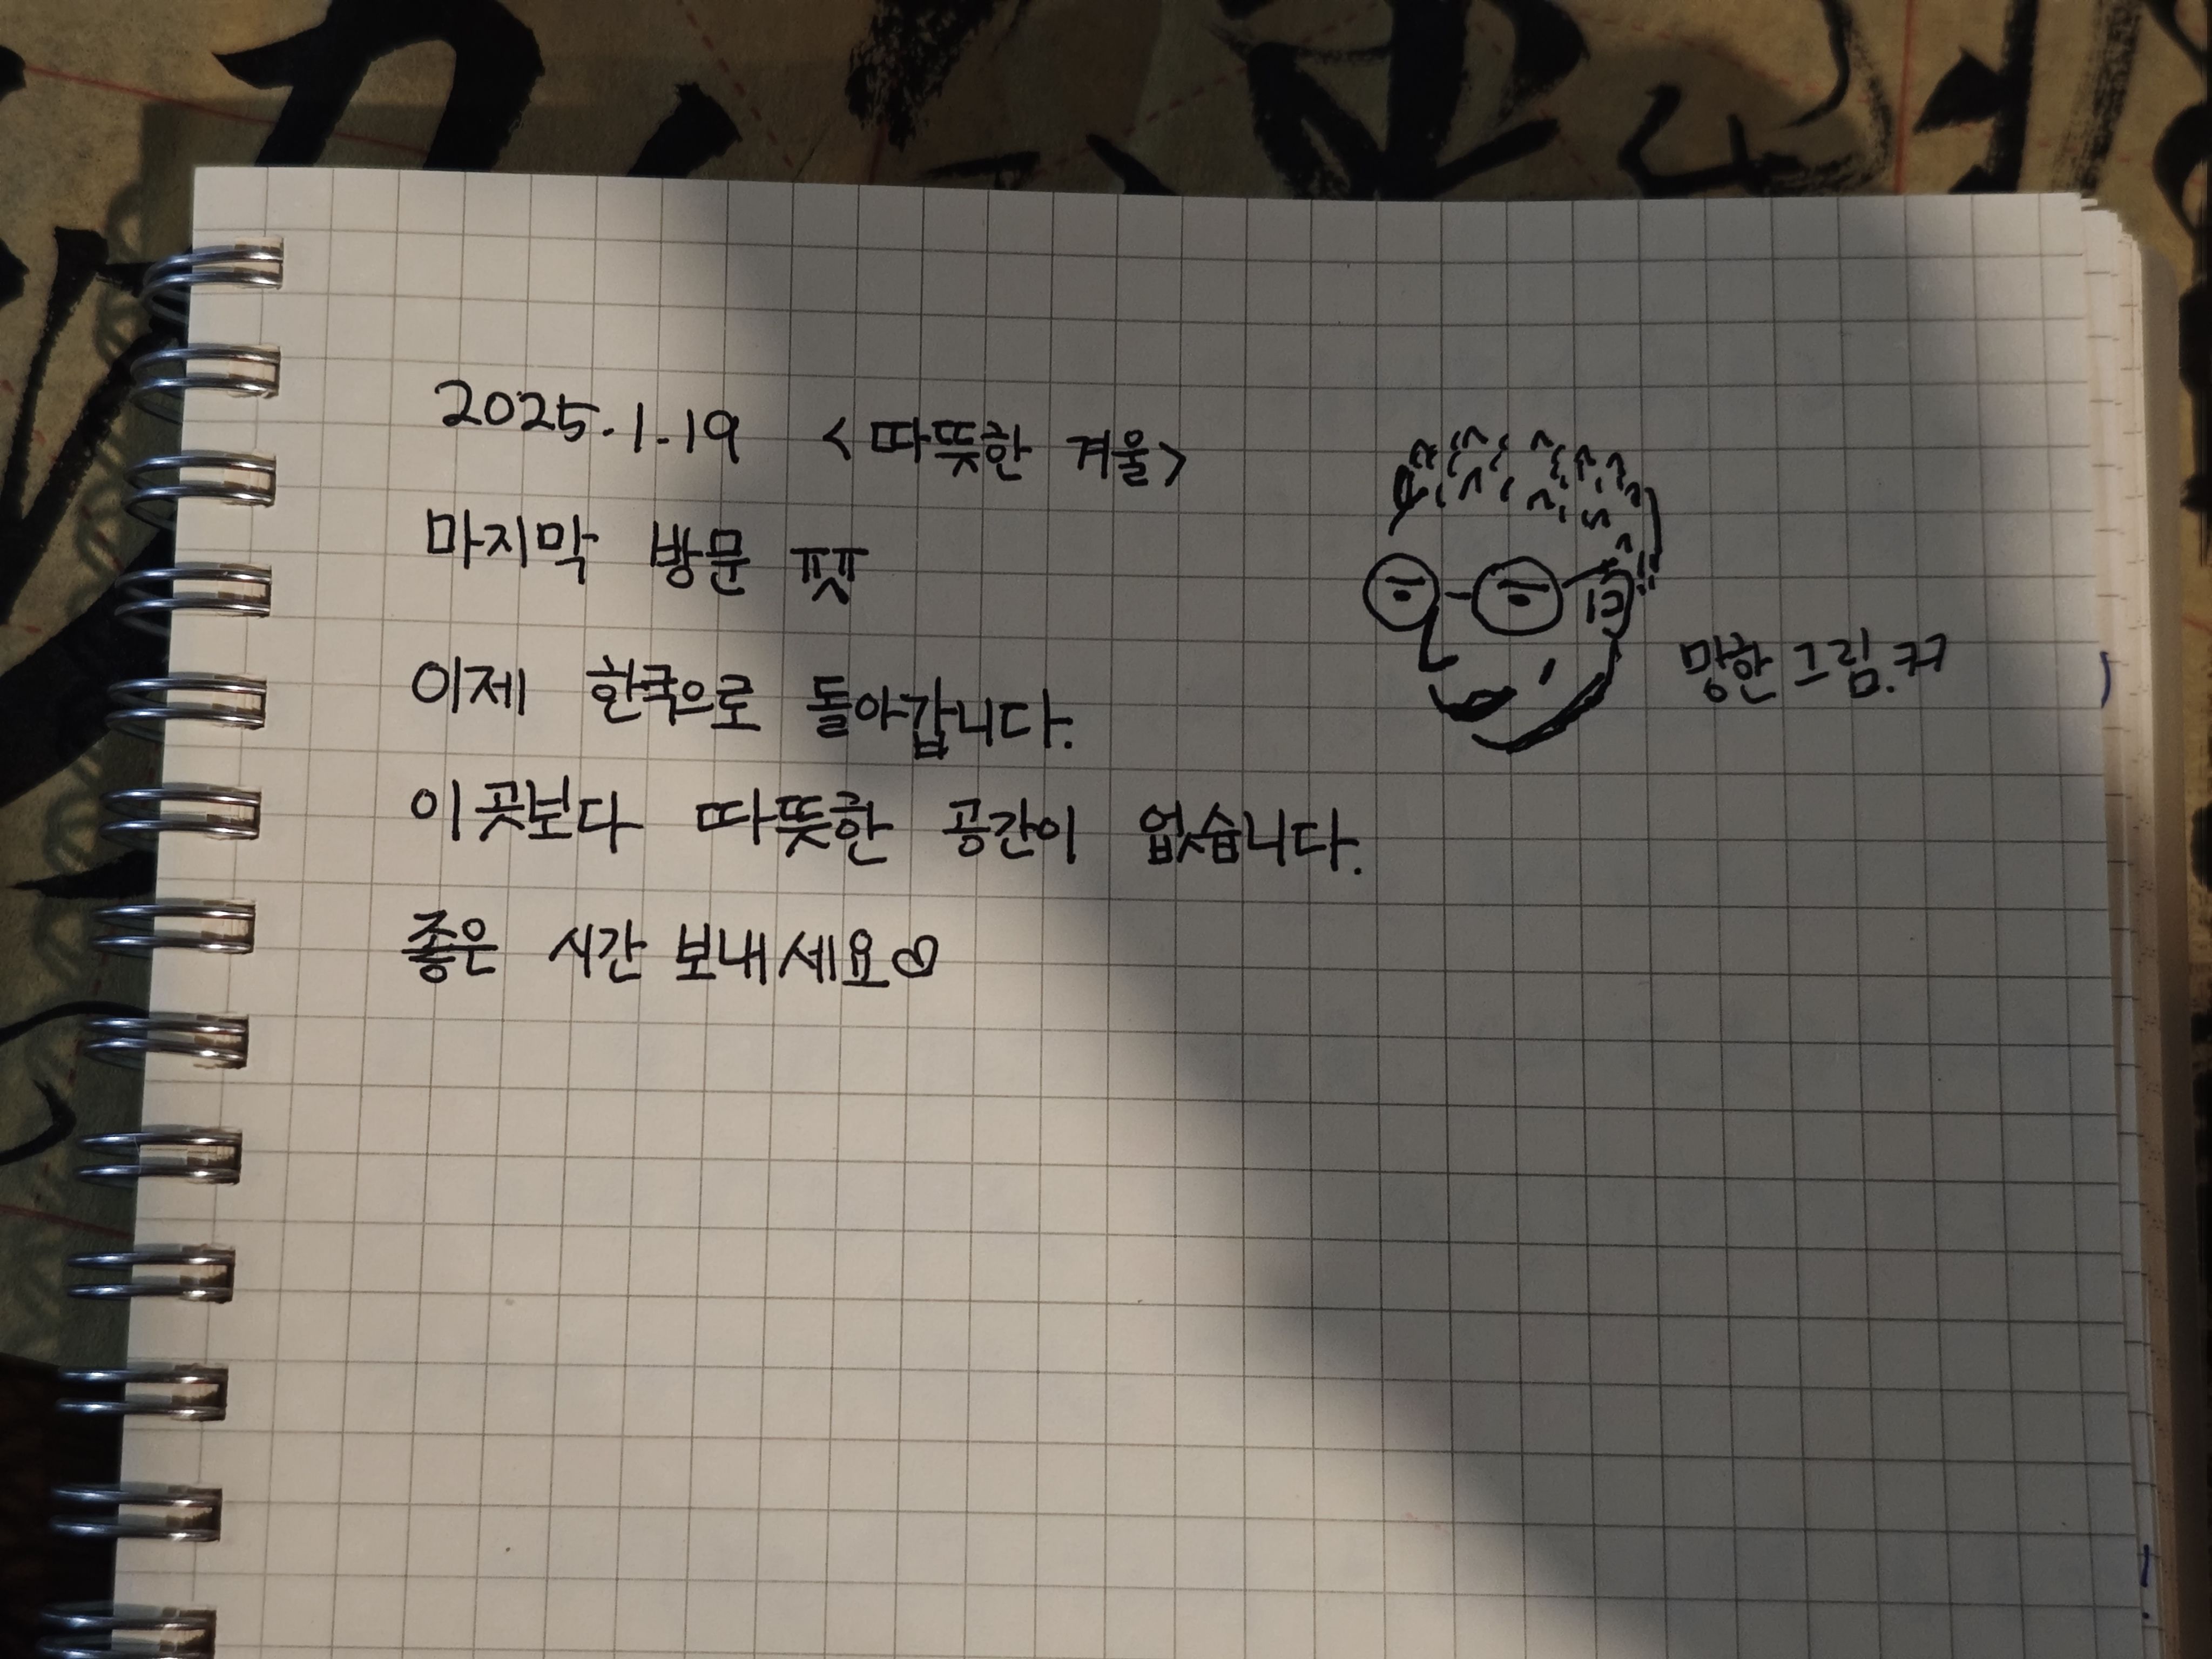 2025.1.19 <따뜻한 겨울>
마지막 방문 ㅠㅅㅠ
이제 한국으로 돌아갑니다.
이곳보다 따뜻한 공간이 없습니다.
좋은 시간 보내세요♡
망한 그림.ㅋㅋ